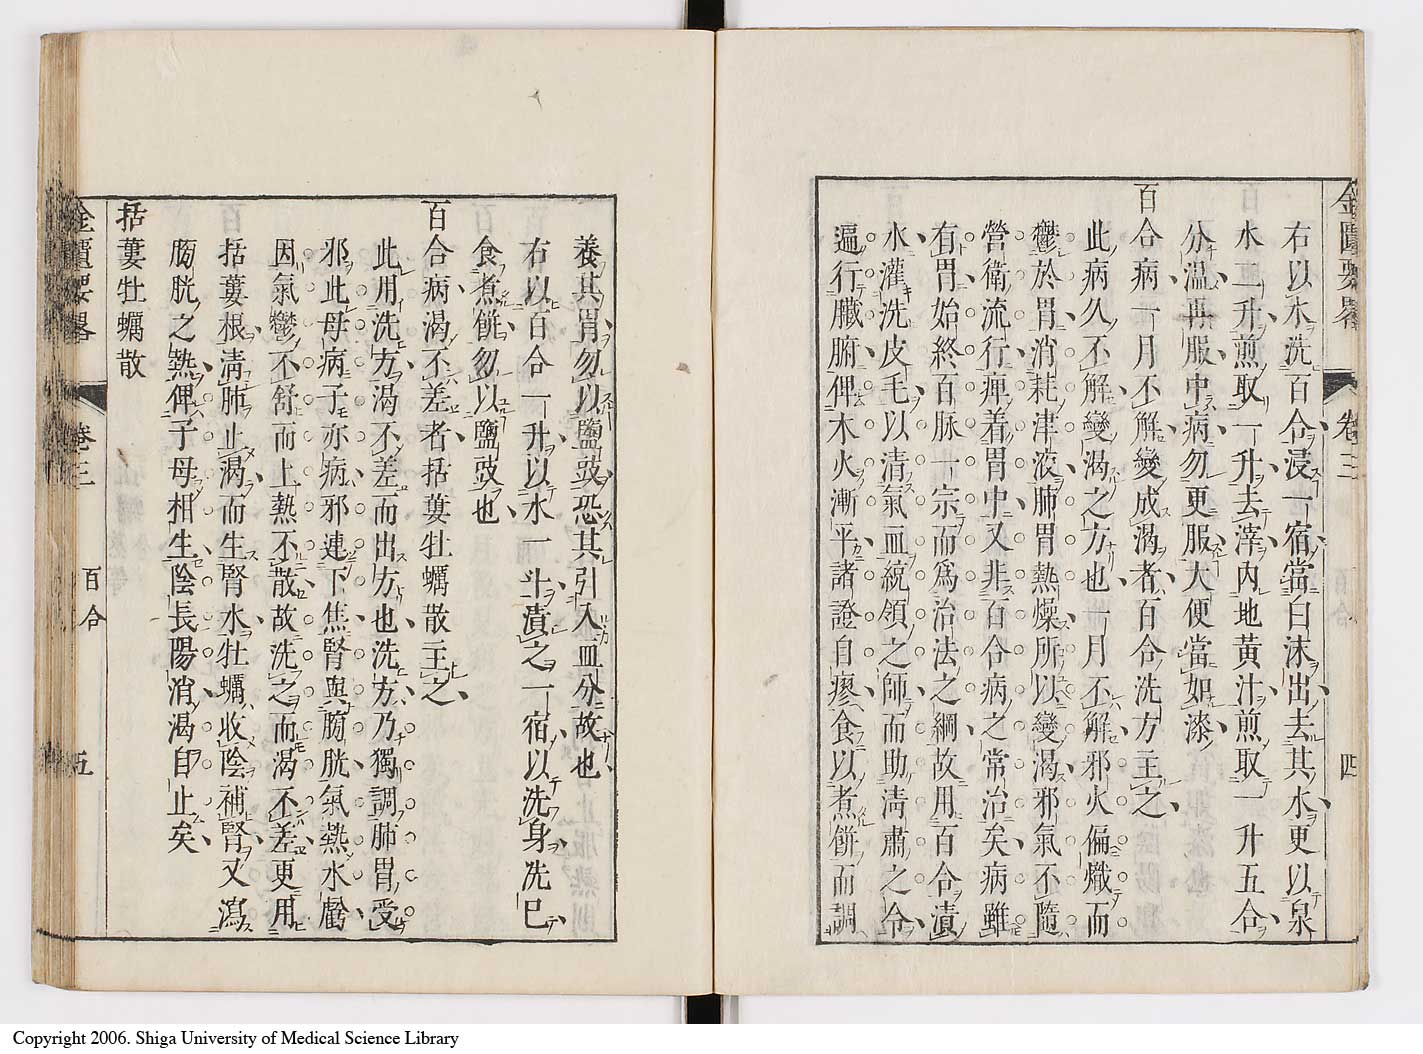 金匱要畧 卷三 四
右以水洗百合浸一宿當白沫出去其水更以泉
水二升煎取一升去滓內地黃汁煎取一升五合
分温再服中病勿更服大便當如漆
百合病一月不解變成渴者百合洗方主之
此病久不解變渴之方也一月不解邪火偏熾而
鬱於胃消耗津液肺胃熱燥所以變渴邪氣不隨
營衛流行痺着胃中又非百合病之常治矣病雖
有胃始終百脉一宗而爲治法之綱故用百合漬
水灌洗皮毛以清氣血統領之師而助清肅之令
遍行臟腑俾木火漸平諸證自瘳食以煮餠而調
養其胃勿以鹽豉恐其引入血分故也
右以百合一升以水一斗漬之一宿以洗身洗已
食煮餠勿以鹽豉也
百合病渴不差者括蔞牡蠣散主之
此用洗方渴不差而出方也洗方乃獨調肺胃受
邪此母病子亦病邪連下焦腎與膀胱氣熱水虧
因氣鬱不舒而上熱不散故洗之而渴不差更用
括蔞根清肺止渴而生腎水牡蠣收陰補腎又瀉
膀胱之熱俾子母相生陰長陽消渴自止矣
括蔞牡蠣散
金匱要畧 卷三 百合 五
Copyright 2006. Shiga University of Medical Science Library